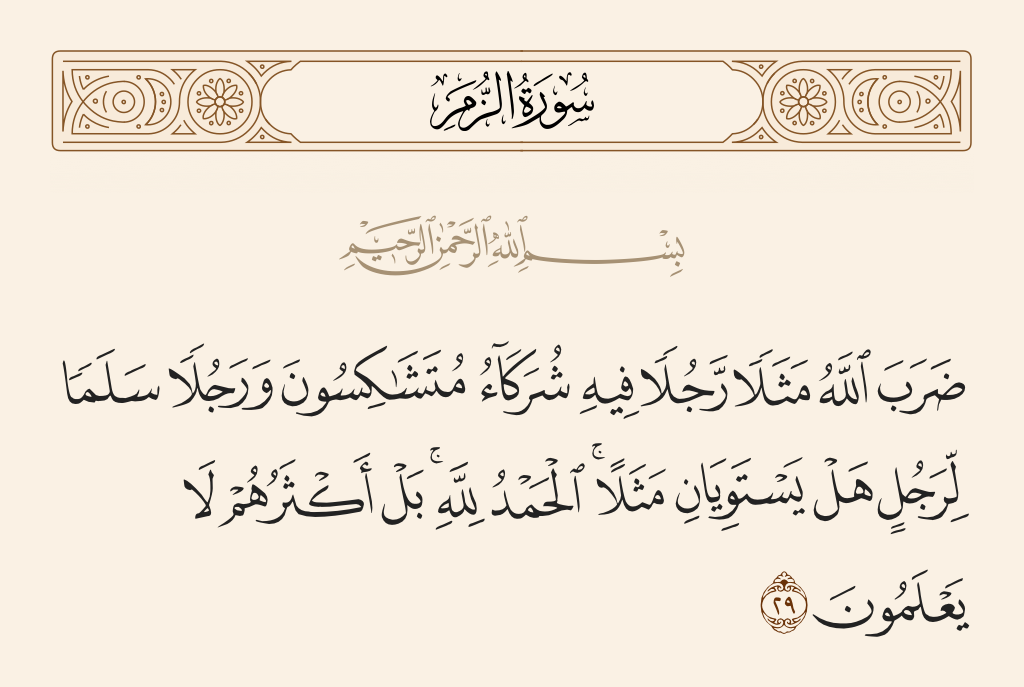 سُورَةُ الزُّمَرِ
بِسْمِ ٱللَّهِ ٱلرَّحْمَٰنِ ٱلرَّحِيمِ
ضَرَبَ ٱللَّهُ مَثَلًا رَّجُلًا فِيهِ شُرَكَآءُ مُتَشَٰكِسُونَ وَرَجُلًا سَلَمًا
لِّرَجُلٍ هَلْ يَسْتَوِيَانِ مَثَلًا ۚ ٱلْحَمْدُ لِلَّهِ ۚ بَلْ أَكْثَرُهُمْ لَا
يَعْلَمُونَ ٢٩